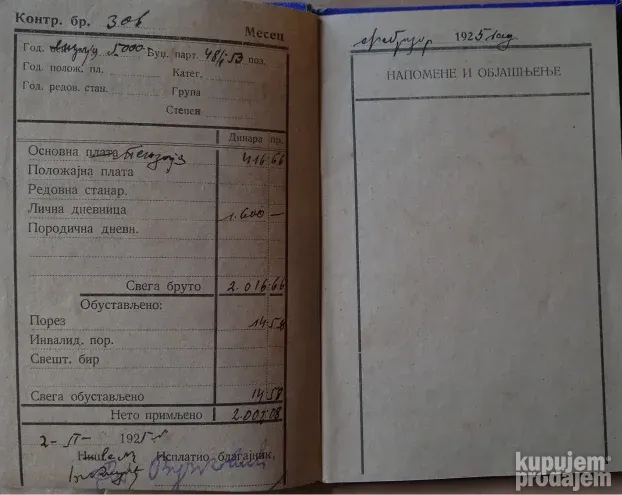 Контр. бр. 306
Месец
Год. пензија 5000 Буџ. парт. 48/ поз.
Год. полож. пл. Катег.
Год. редов. стан. Група
Степен
Динара пр.
Основна плата пензија 416.66
Положајна плата
Редовна станар.
Лична дневница 1.600 —
Породична дневн.
Свега бруто 2.016.66
Обустављено:
Порез 14.58
Инвалид. пор.
Свешт. бир
Свега обустављено 14.58
Нето примљено 2.002.08
2-II- 1925
Исплатио благајник,
фебруар 1925 год
НАПОМЕНЕ И ОБЈАШЊЕЊЕ
kupujem
prodajem